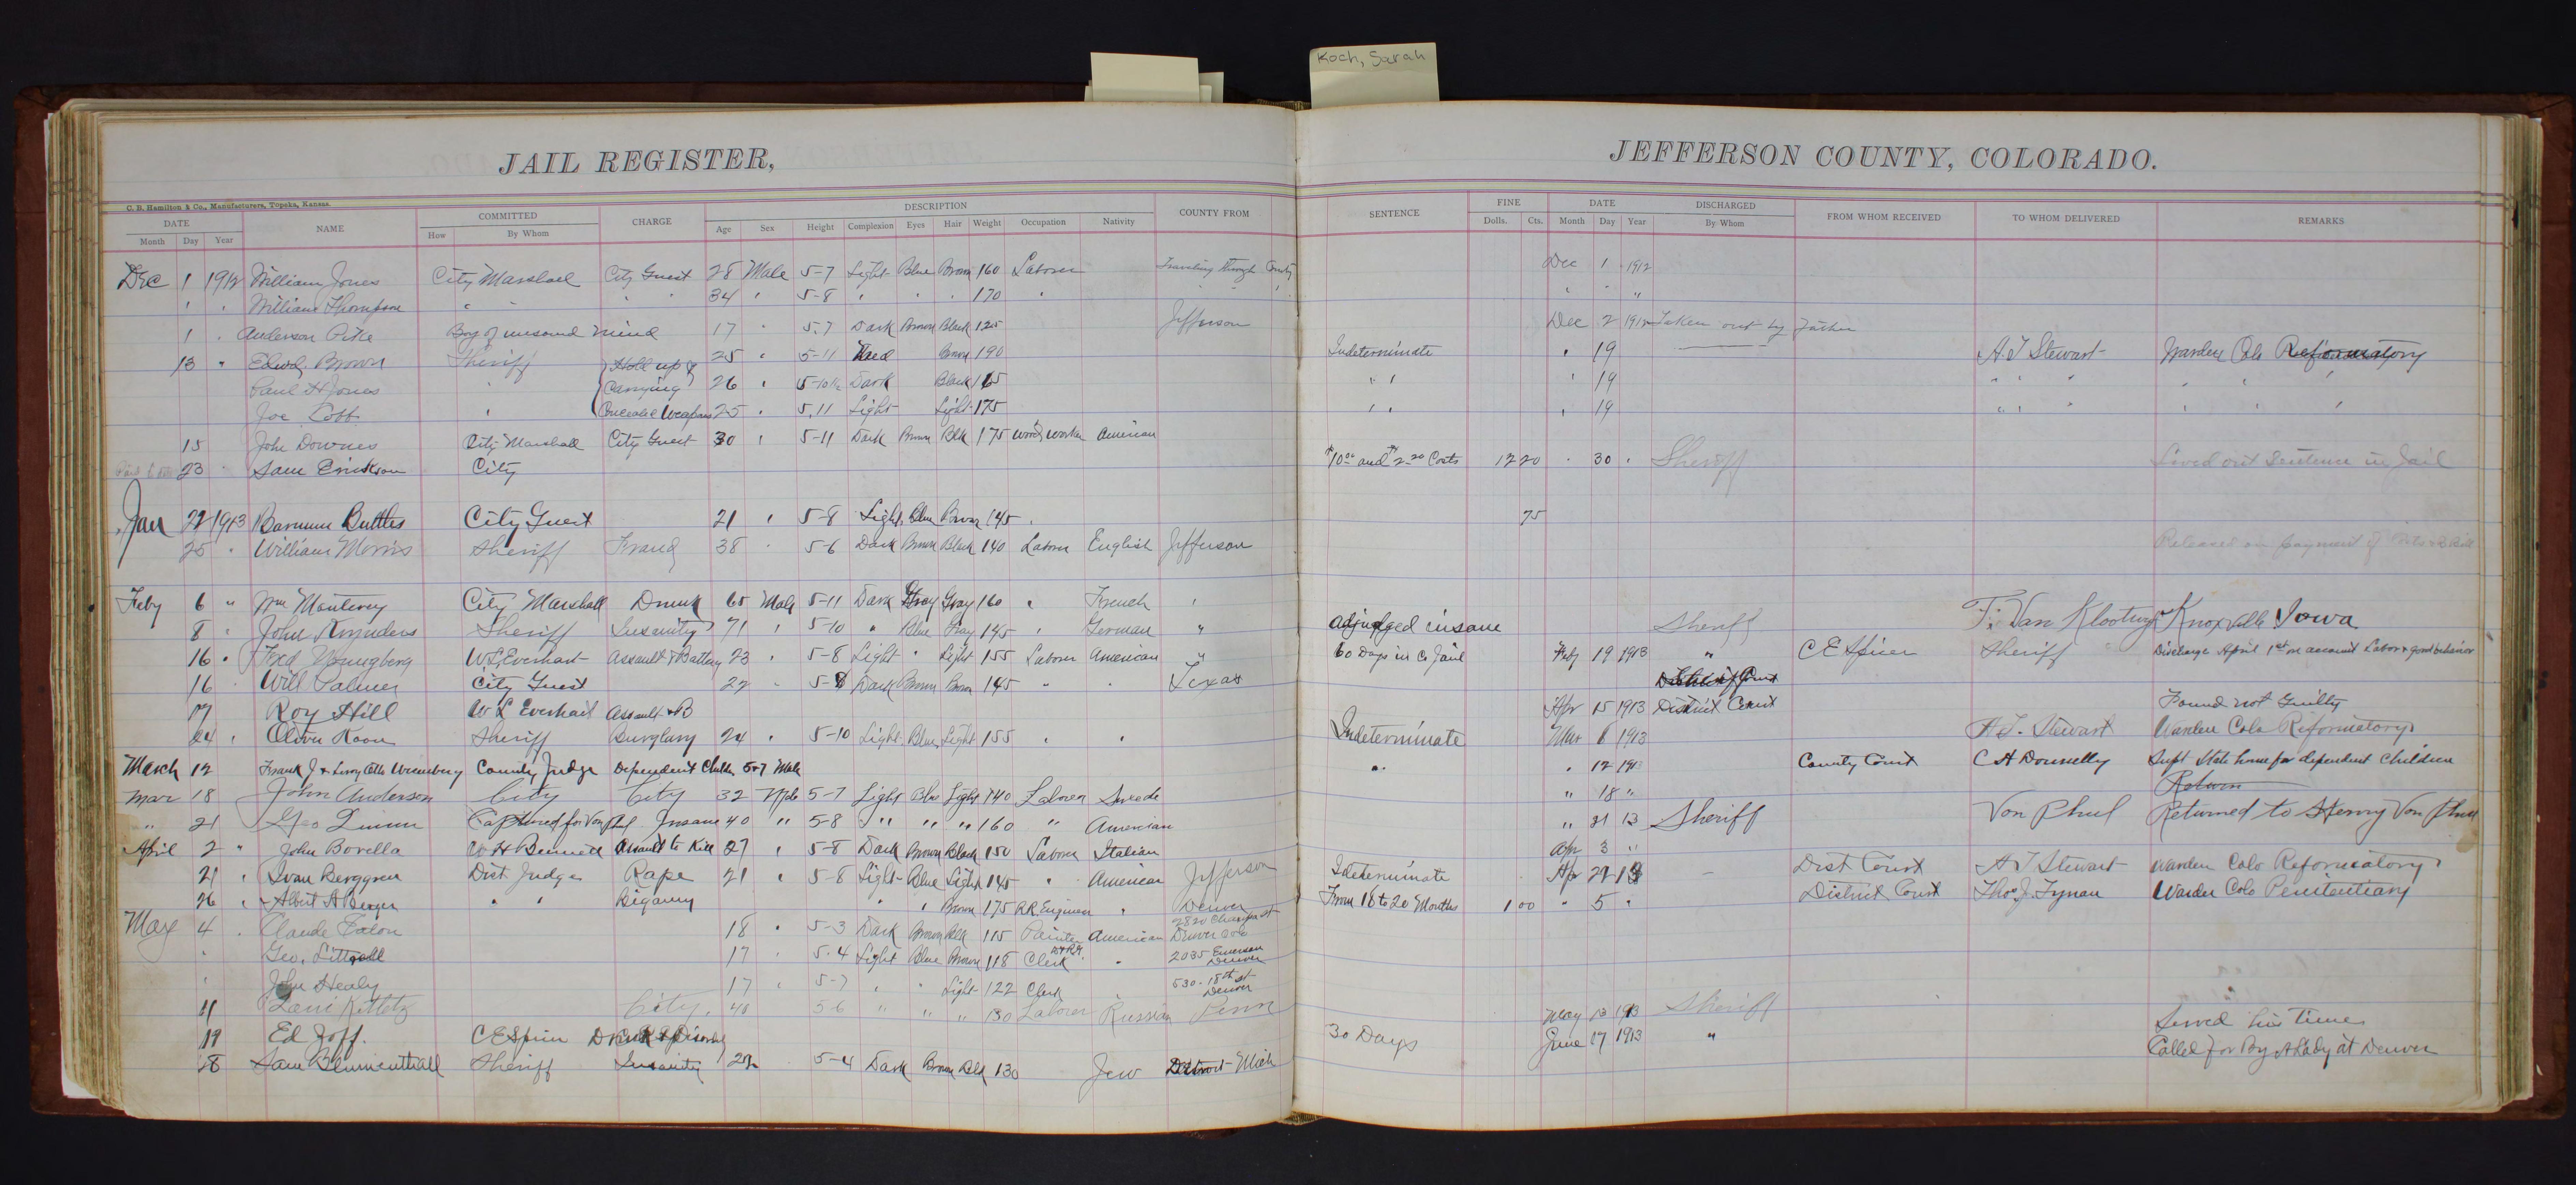 Koch, Sarah
JAIL REGISTER,
JEFFERSON COUNTY, COLORADO.
C. B. Hamilton & Co., Manufacturers, Topeka, Kansas.
DATE NAME COMMITTED CHARGE DESCRIPTION COUNTY FROM SENTENCE FINE DATE DISCHARGED FROM WHOM RECEIVED TO WHOM DELIVERED REMARKS
Month Day Year How By Whom Age Sex Height Complexion Eyes Hair Weight Occupation Nativity Dolls. Cts. Month Day Year By Whom
Dec 1 1912 William Jones City Marshall City Guest 28 Male 5-7 Light Blue Brown 160 Laborer Traveling through County Dec 1 1912
" " William Thompson " " " " 34 " 5-8 " " " 170 " " " " " " "
1 " Anderson Pike Boy of unsound mind 17 " 5.7 Dark Brown Black 125 Jefferson Dec 2 1912 Taken out by Father
13 " Edwd. Brown Sheriff Hold up & 25 " 5-11 Med Brown 190 Indeterminate " 19 A. T Stewart Warden Colo Reformatory
Paul H Jones " Carrying 26 " 5-10½ Dark Black 165 " " " 19 " " " " " "
Joe Cobb " Concealed Weapons 25 " 5.11 Light Light 175 " " " 19 " " " " " "
15 John Downes City Marshall City Guest 30 " 5-11 Dark Brown Blk 175 Wood worker American
23 " Sam Erickson City $10.00 and $2.20 Costs 12 20 " 30 " Sheriff Served out Sentence in Jail
Jan 22 1913 Barnum Buttles City Guest 21 " 5-8 Light Blue Brown 145 " 75
25 " William Morris Sheriff Fraud 38 " 5-6 Dark Brown Black 140 Laborer English Jefferson Released on payment of
Feby 6 " Wm Monterey City Marshall Drunk 65 Male 5-11 Dark Gray Gray 160 " French "
8 " John Sheriff Insanity 71 " 5-10 " Blue Gray 145 " German " adjudged insane Sheriff F. Van Knoxville Iowa
16 " Fred Youngberg W.L. Everhart Assault & Battery 23 " 5-8 Light " Light 155 Laborer American " 60 Days in Co Jail Feby 19 1913 " C E Spicer Sheriff Discharge April 1st on account Labor & good behavior
16 " Will Palmer City Guest 22 " 5-8 Dark Brown Brown 145 " " Texas
17 Roy Hill W L Everhart Assault & B Apr 15 1913 District Court Found not Guilty
24 " Oliver Koon Sheriff Burglary 24 " 5-10 Light Blue Light 155 " " Indeterminate Mar 1913 A. T. Stewart Warden Colo Reformatory
March 12 Frank J & Leroy County Judge Dependent Childn 5&7 Male " " 12 1913 County Court C H Donnelly Supt State home for dependent Children
Mar 18 John Anderson City City 32 Male 5-7 Light Blue Light 140 Laborer Swede " 18 " Return
" 21 Geo Captured for Von Phul Insane 40 " 5-8 " " " 160 " American " 21 13 Sheriff Von Phul Returned to Henry Von Phul
April 2 " John Borella W H Bennett Assault to Kill 27 " 5-8 Dark Brown Black 150 Laborer Italian Apr 3 "
21 " Ivan Berggren Dist Judge Rape 21 " 5-8 Light Blue Light 145 " American Jefferson Indeterminate Apr 13 — Dist Court A T Stewart Warden Colo Reformatory
26 " Albert A Berger " " Bigamy " " Brown 175 RR Engineer " Denver From 18 to 20 Months 1 00 " 5 " District Court Thos. J. Tynan Warden Colo Penitentiary
May 4 " Claude 18 " 5-3 Dark Brown Blk 115 Painter American 2820 Champa st Denver Colo
" Geo. Littrell 17 " 5-4 Light Blue Brown 118 Clerk " 2035 Emerson Denver
" John Healy 17 " 5-7 " " Light 122 Clerk " 530-18th st Denver
11 City 48 5-6 " " " 130 Laborer Russian Penn May 13 1913 Sheriff
19 Ed Joff. C E Spicer Drunk & Disorderly 30 Days June 17 1913 " Served his Time
28 Sam Blumenthall Sheriff Insanity 5-4 Dark Brown Blk 130 Jew Detroit-Mich Called for By A Lady at Denver